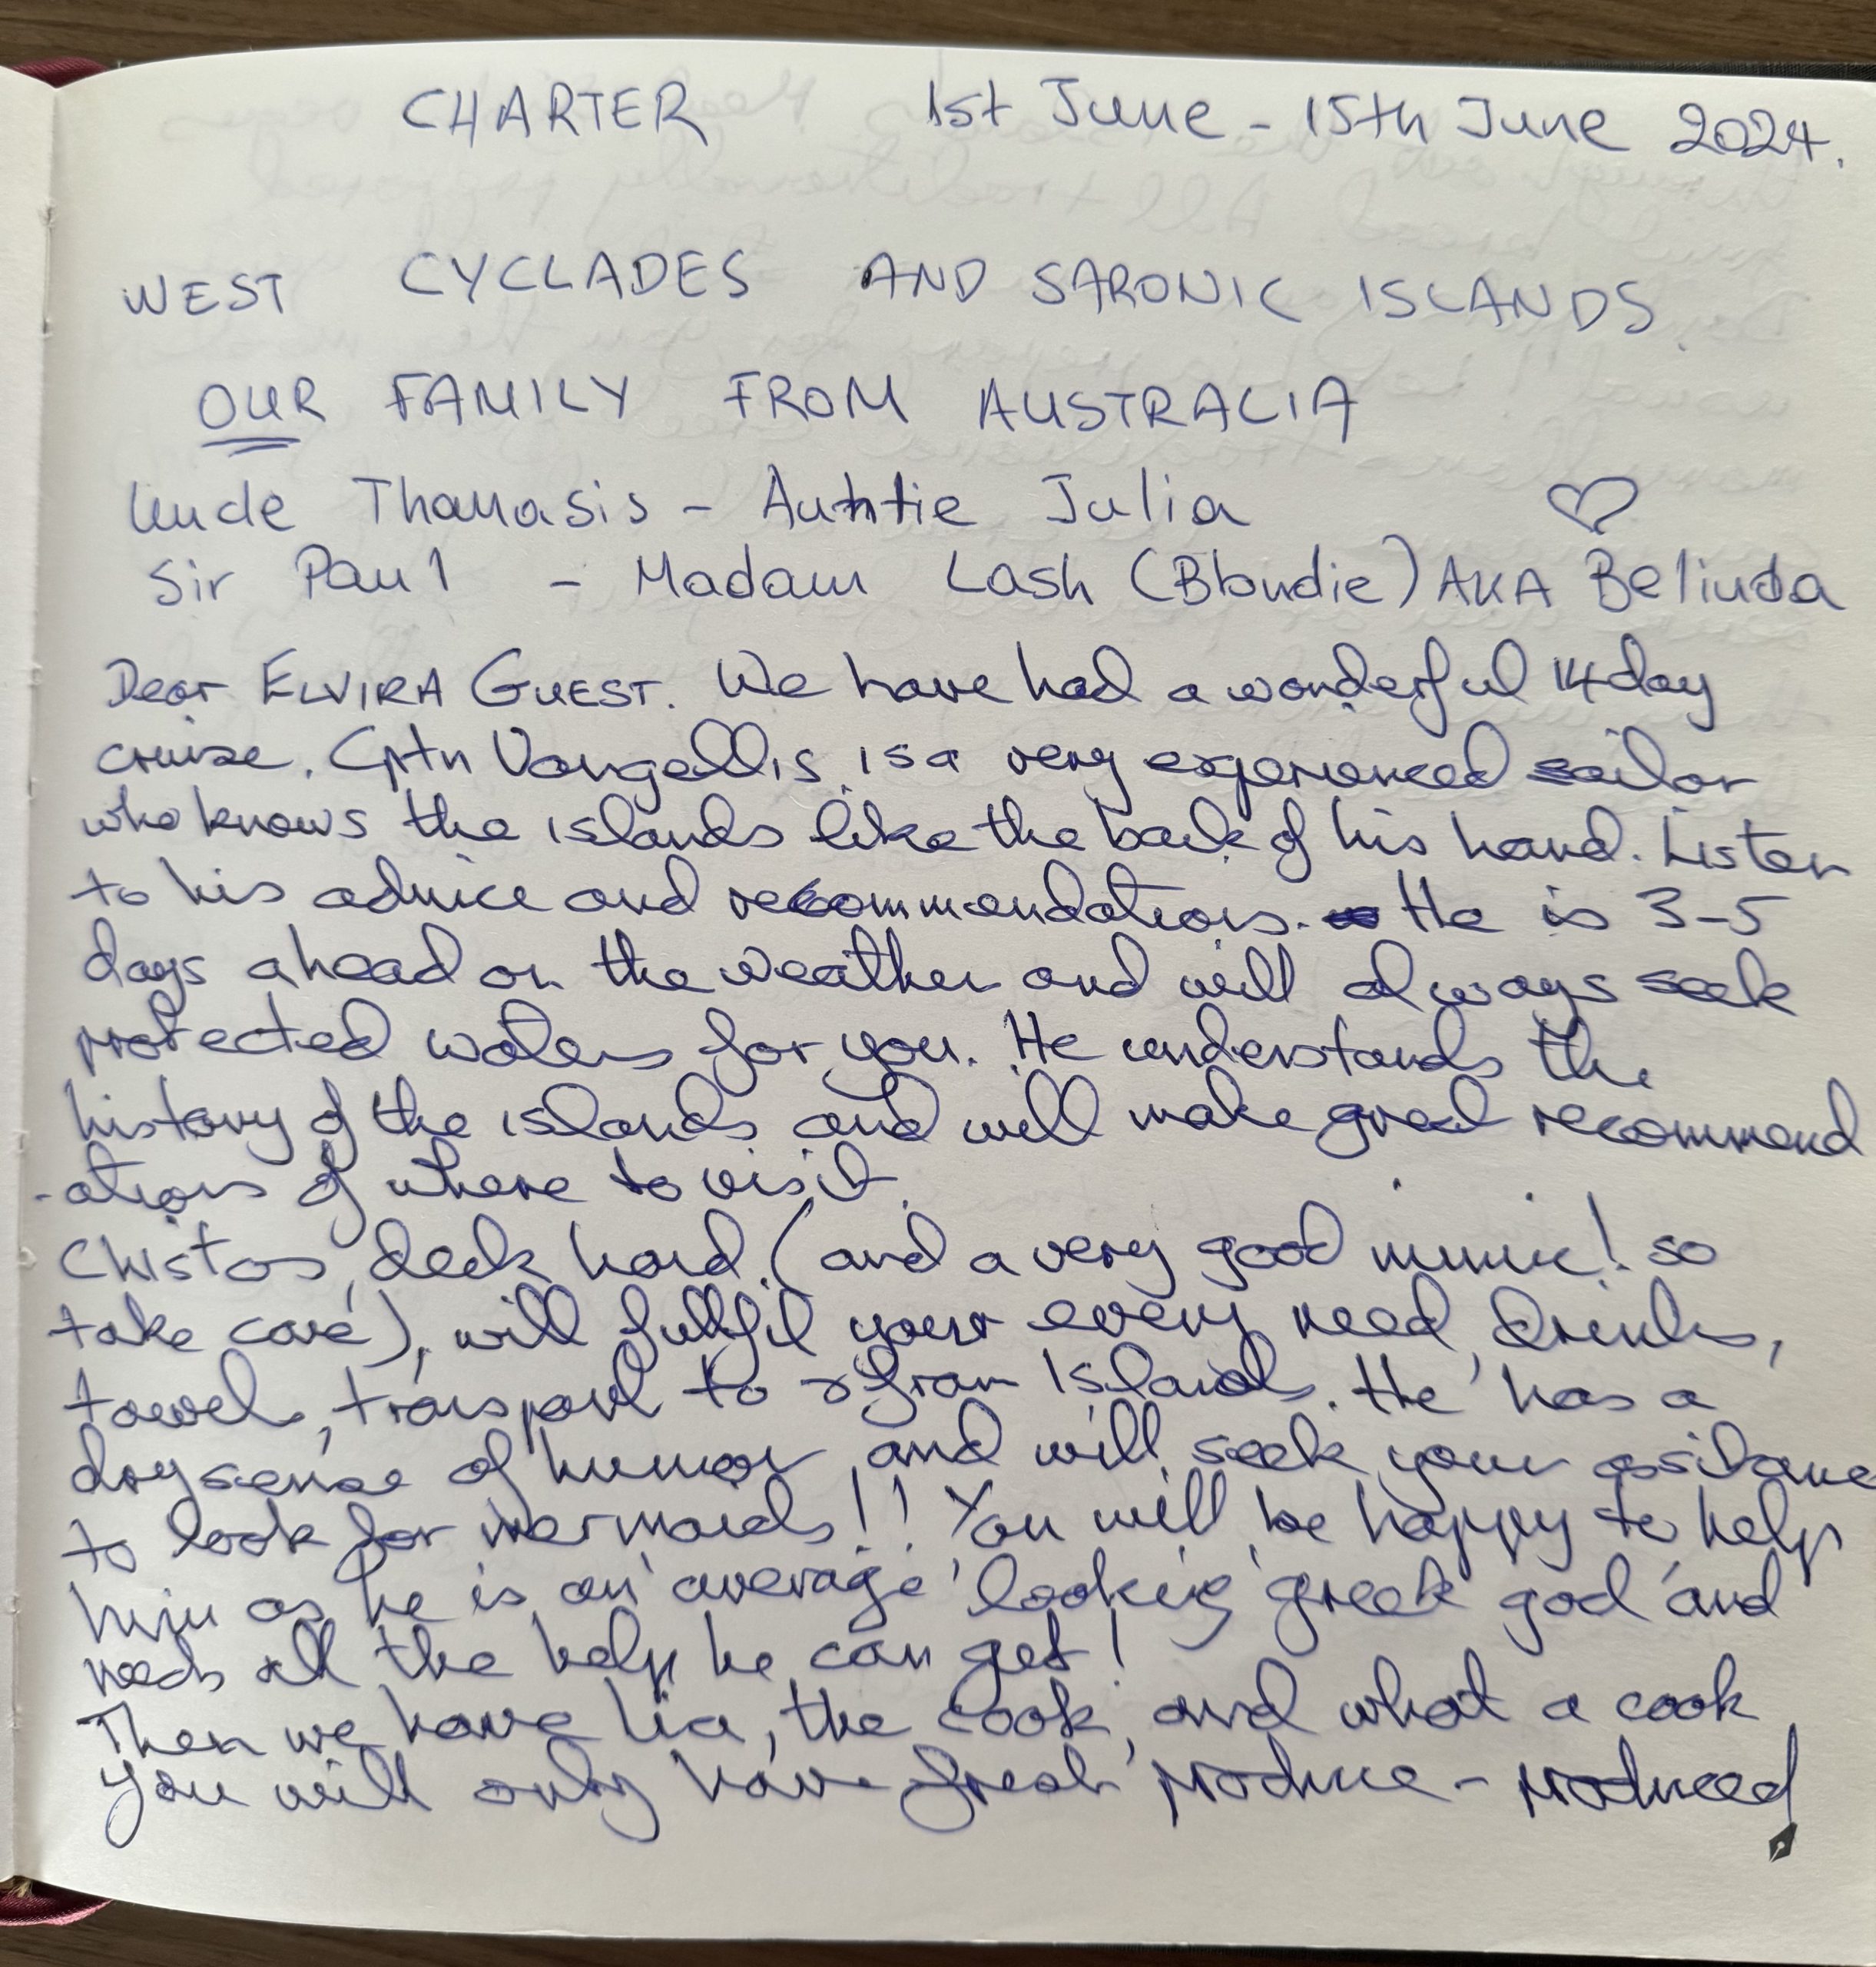 CHARTER 1st June - 15th June 2024.
WEST CYCLADES AND SARONIC ISLANDS.
OUR FAMILY FROM AUSTRALIA
Uncle Thanasis - Auntie Julia ♡
Sir Paul - Madam Lash (Blondie) AKA Belinda
Dear ELVIRA GUEST. We have had a wonderful 14 day
cruise. Cptn Vangellis, is a very experienced sailor
who knows the islands like the back of his hand. Listen
to his advice and recommendations. He is 3-5
days ahead on the weather and will always seek
protected waters for you. He understands the
history of the islands and will make great recommend
-ations of where to visit.
Christos, deck hand, (and a very good mimic! so
take care), will fullfil your every need, Drinks,
towels, transport to & from Islands. He has a
dry sense of humor and will seek your assitance
to look for mermaids!! You will be happy to help
him as he is an 'average' looking greek god and
needs all the help he can get!
Then we have Lia, the cook, and what a cook
you will only have fresh produce - produced